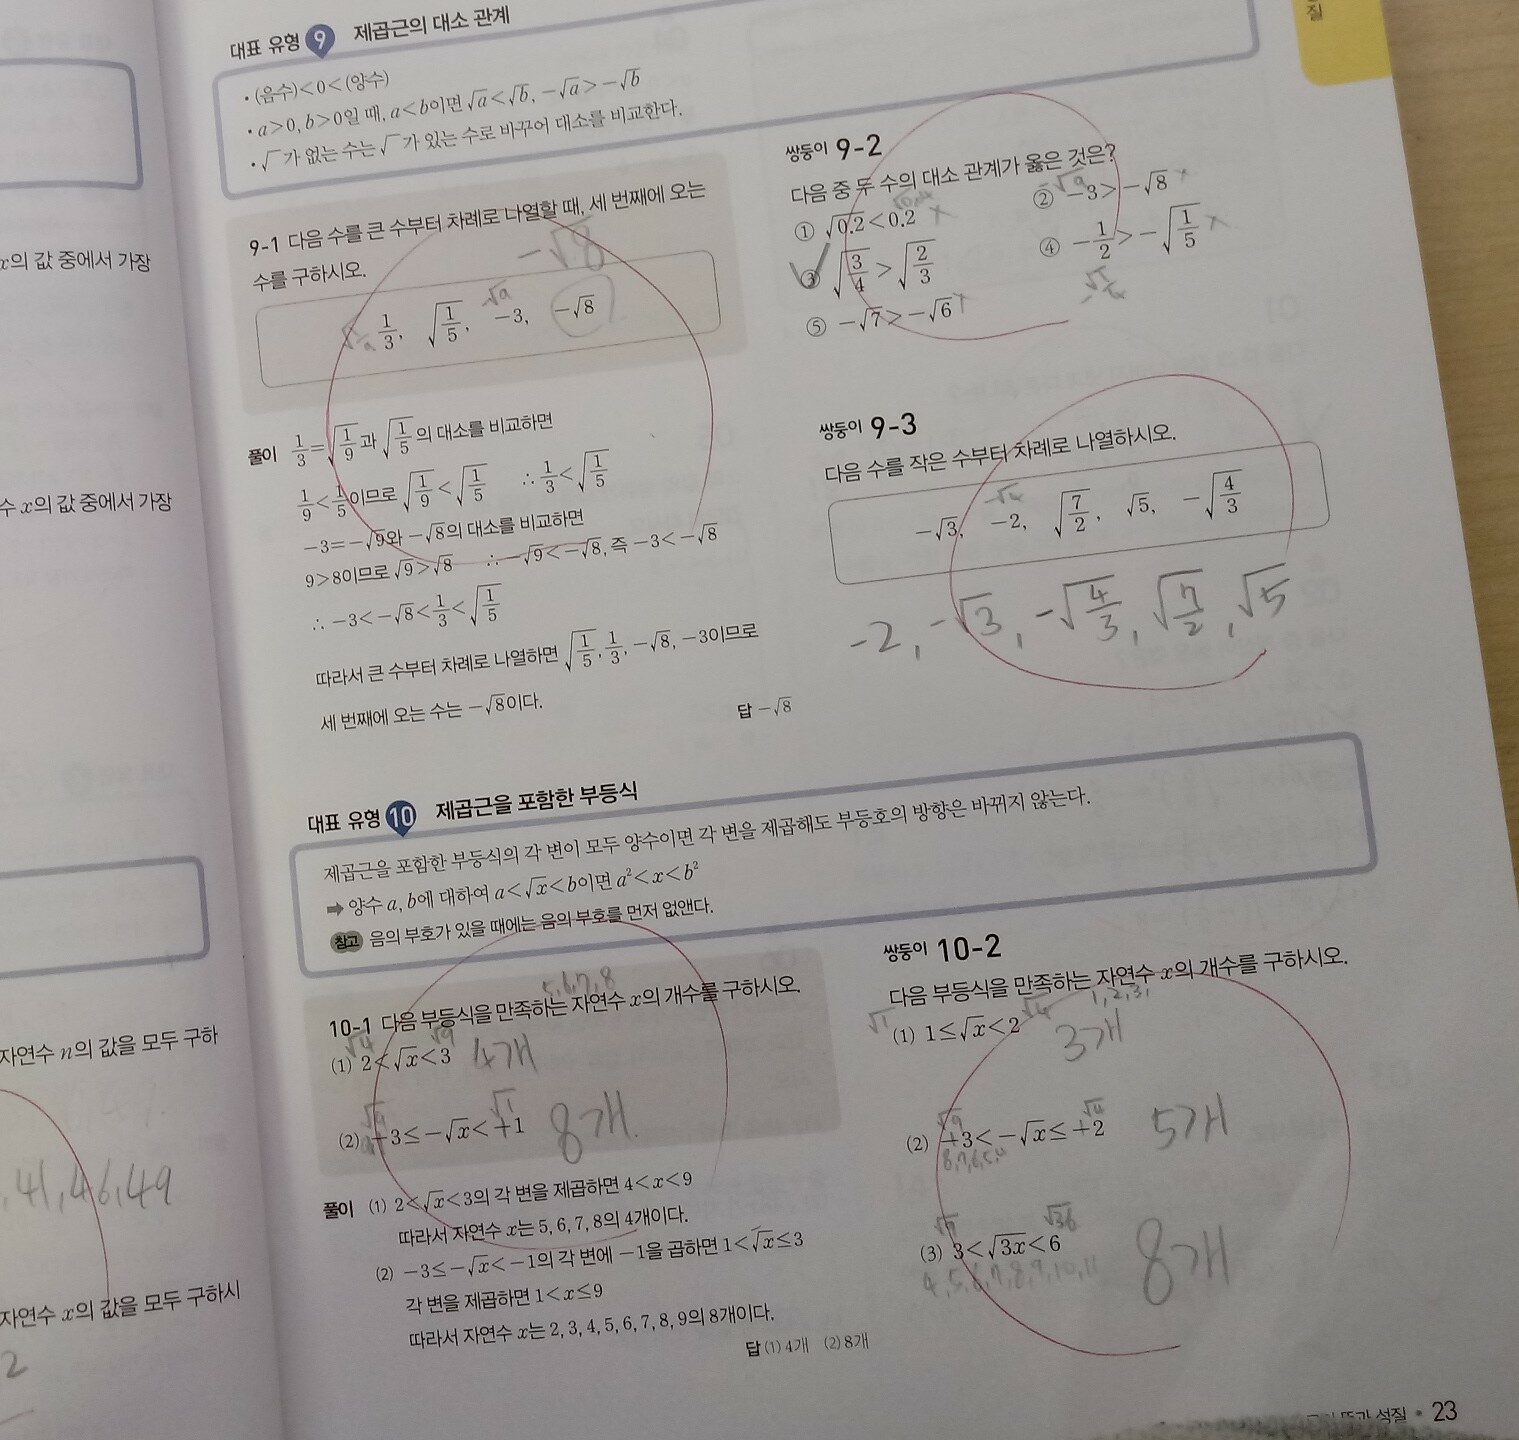 질
x의 값 중에서 가장
수 x의 값 중에서 가장
자연수 n의 값을 모두 구하
, 41, 46, 49
자연수 x의 값을 모두 구하시
2
대표 유형 9 제곱근의 대소 관계
• (음수)<0<(양수)
• a>0, b>0일 때, a<b이면 √a<√b, -√a>-√b
• √ 가 없는 수는 √ 가 있는 수로 바꾸어 대소를 비교한다.
9-1 다음 수를 큰 수부터 차례로 나열할 때, 세 번째에 오는
수를 구하시오.
-√8
√9
1/3, √(1/5), -3, -√8
풀이 1/3=√(1/9)과 √(1/5)의 대소를 비교하면
1/9<1/5이므로 √(1/9)<√(1/5) ∴ 1/3<√(1/5)
-3=-√9와 -√8의 대소를 비교하면
9>8이므로 √9>√8 ∴ -√9<-√8, 즉 -3<-√8
∴ -3<-√8<1/3<√(1/5)
따라서 큰 수부터 차례로 나열하면 √(1/5), 1/3, -√8, -3이므로
세 번째에 오는 수는 -√8이다.
답 -√8
쌍둥이 9-2
다음 중 두 수의 대소 관계가 옳은 것은?
① √0.2<0.2 x
② -3>-√8 x
-√9
③ √(3/4)>√(2/3)
④ -1/2>-√(1/5) x
⑤ -√7>-√6 x
쌍둥이 9-3
다음 수를 작은 수부터 차례로 나열하시오.
-√4
-√3, -2, √(7/2), √5, -√(4/3)
-2, -√3, -√(4/3), √(7/2), √5
대표 유형 10 제곱근을 포함한 부등식
제곱근을 포함한 부등식의 각 변이 모두 양수이면 각 변을 제곱해도 부등호의 방향은 바뀌지 않는다.
➡ 양수 a, b에 대하여 a<√x<b이면 a²<x<b²
참고 음의 부호가 있을 때에는 음의 부호를 먼저 없앤다.
5,6,7,8
10-1 다음 부등식을 만족하는 자연수 x의 개수를 구하시오.
√4 √9
(1) 2<√x<3 4개
√9 √1
(2) -3≤-√x<-1 8개.
풀이 (1) 2<√x<3의 각 변을 제곱하면 4<x<9
따라서 자연수 x는 5, 6, 7, 8의 4개이다.
(2) -3≤-√x<-1의 각 변에 -1을 곱하면 1<√x≤3
각 변을 제곱하면 1<x≤9
따라서 자연수 x는 2, 3, 4, 5, 6, 7, 8, 9의 8개이다.
답 (1) 4개 (2) 8개
쌍둥이 10-2
다음 부등식을 만족하는 자연수 x의 개수를 구하시오.
√1 √4 1,2,3,
(1) 1≤√x<2 3개
√9 √4
(2) -3<-√x≤-2 5개
8,7,6,5,4
√9 √36
(3) 3<√3x<6 8개
4,5,6,7,8,9,10,11
성질 • 23